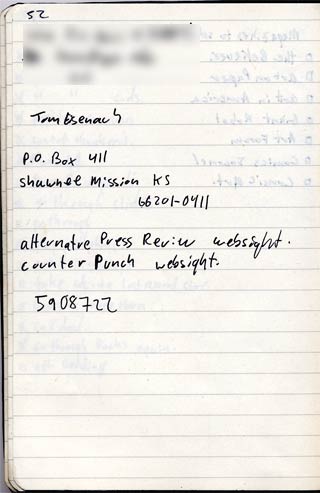 52
Tom Esenach
P.O. Box 411
Shawnee Mission KS
66201-0411
alternatve Press Review websight.
counter Punch websight.
5908722